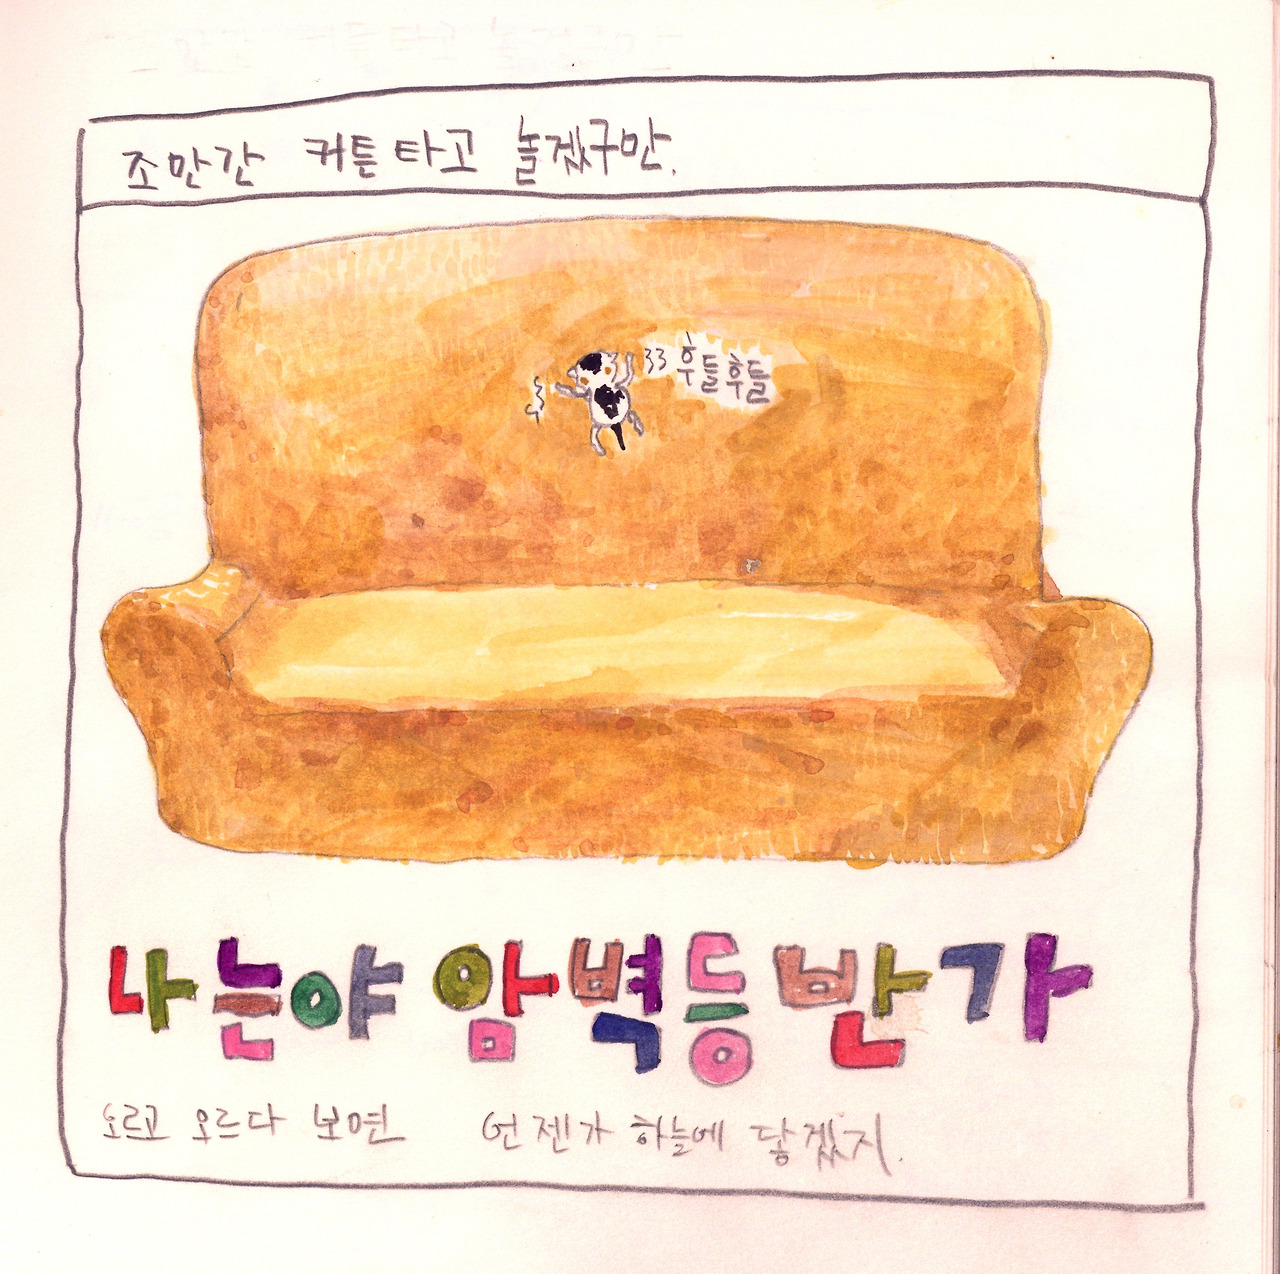 조만간 커튼 타고 놀겠구만.
후들후들
나는야 암벽등반가
오르고 오르다 보면 언젠가 하늘에 닿겠지.